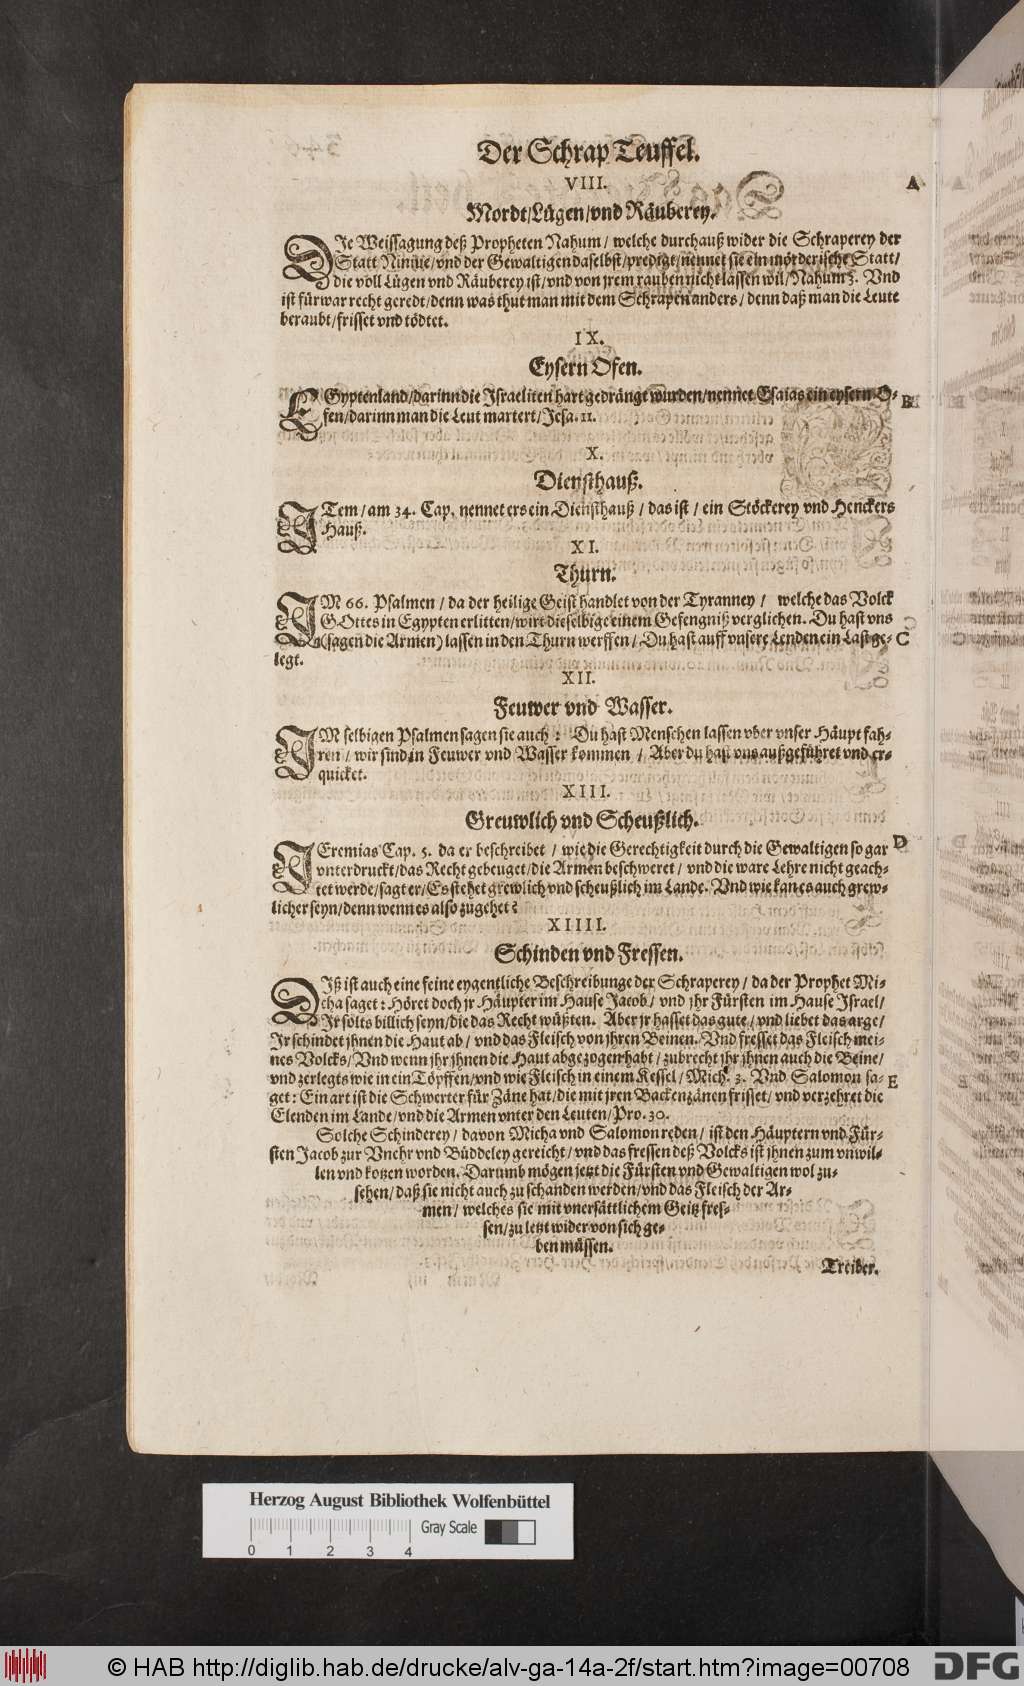 Der Schrap Teuffel.
VIII.
A
Mordt/Lügen/vnd Räuberey.
DIe Weissagung deß Propheten Nahum/ welche durchauß wider die Schraperey der
Statt Niniue/vnd der Gewaltigen daselbst/predigt/nennet sie ein mörderische Statt/
die voll Lügen vnd Räuberey ist/vnd von jrem rauben nicht lassen wil/Nahum 3. Vnd
ist fürwar recht geredt/denn was thut man mit dem Schrapen anders/ denn daß man die Leute
beraubt/frisset vnd tödtet.
IX.
Eysern Ofen.
EGyptenland/darinn die Israeliten hart gedrängt wurden/nennet Esaias ein eysern O-
B
fen/darinn man die Leut martert/Jesa. 11.
X.
Diensthauß.
ITem/am 34. Cap. nennet ers ein Diensthauß/ das ist/ ein Stöckerey vnd Henckers
Hauß.
XI.
Thurn.
IM 66. Psalmen/ da der heilige Geist handlet von der Tyranney/ welche das Volck
GOttes in Egypten erlitten/wirt dieselbige einem Gefengniß verglichen. Du hast vns
(sagen die Armen) lassen in den Thurn werffen/ Du hast auff vnsere Lenden ein Last ge-
C
legt.
XII.
Feuwer vnd Wasser.
IM selbigen Psalmen sagen sie auch: Du hast Menschen lassen vber vnser Häupt fah-
ren/ wir sind in Feuwer vnd Wasser kommen/ Aber du hast vns außgeführet vnd er-
quicket.
XIII.
Greuwlich vnd Scheußlich.
D
IEremias Cap. 5. da er beschreibet/ wie die Gerechtigkeit durch die Gewaltigen so gar
vnterdruckt/das Recht gebeuget/die Armen beschweret/ vnd die ware Lehre nicht geach-
tet werde/sagt er/Es stehet grewlich vnd scheußlich im Lande. Vnd wie kan es auch grew-
licher seyn/denn wenn es also zugehet?
XIIII.
Schinden vnd Fressen.
DIß ist auch eine feine eygentliche Beschreibunge der Schraperey/ da der Prophet Mi-
cha saget: Höret doch jr Häupter im Hause Jacob/ vnd jhr Fürsten im Hause Israel/
Ir solts billich seyn/die das Recht wüßten. Aber jr hasset das gute/ vnd liebet das arge/
Ir schindet jhnen die Haut ab/ vnd das Fleisch von jhren Beinen/ Vnd fresset das Fleisch mei-
nes Volcks/ Vnd wenn jhr jhnen die Haut abgezogen habt/ zubrecht jhr jhnen auch die Beine/
vnd zerlegts wie in ein Töpffen/vnd wie Fleisch in einem Kessel/ Mich. 3. Vnd Salomon sa-
E
get: Ein art ist die Schwerter für Zäne hat/die mit jren Backenzänen frisset/ vnd verzehret die
Elenden im Lande/vnd die Armen vnter den Leuten/Pro. 30.
Solche Schinderey/ davon Micha vnd Salomon reden/ ist den Häuptern vnd Für-
sten Jacob zur Vnehr vnd Büddeley gereicht/ vnd das fressen deß Volcks ist jhnen zum vnwil-
len vnd kotzen worden. Darumb mögen jetzt die Fürsten vnd Gewaltigen wol zu-
sehen/ daß sie nicht auch zu schanden werden/vnd das Fleisch der Ar-
men/ welches sie mit vnersättlichem Geitz fres-
sen/zu letzt wider von sich ge-
ben müssen.
Treiber.
Herzog August Bibliothek Wolfenbüttel
Gray Scale
0 1 2 3 4
© HAB http://diglib.hab.de/drucke/alv-ga-14a-2f/start.htm?image=00708
DFG